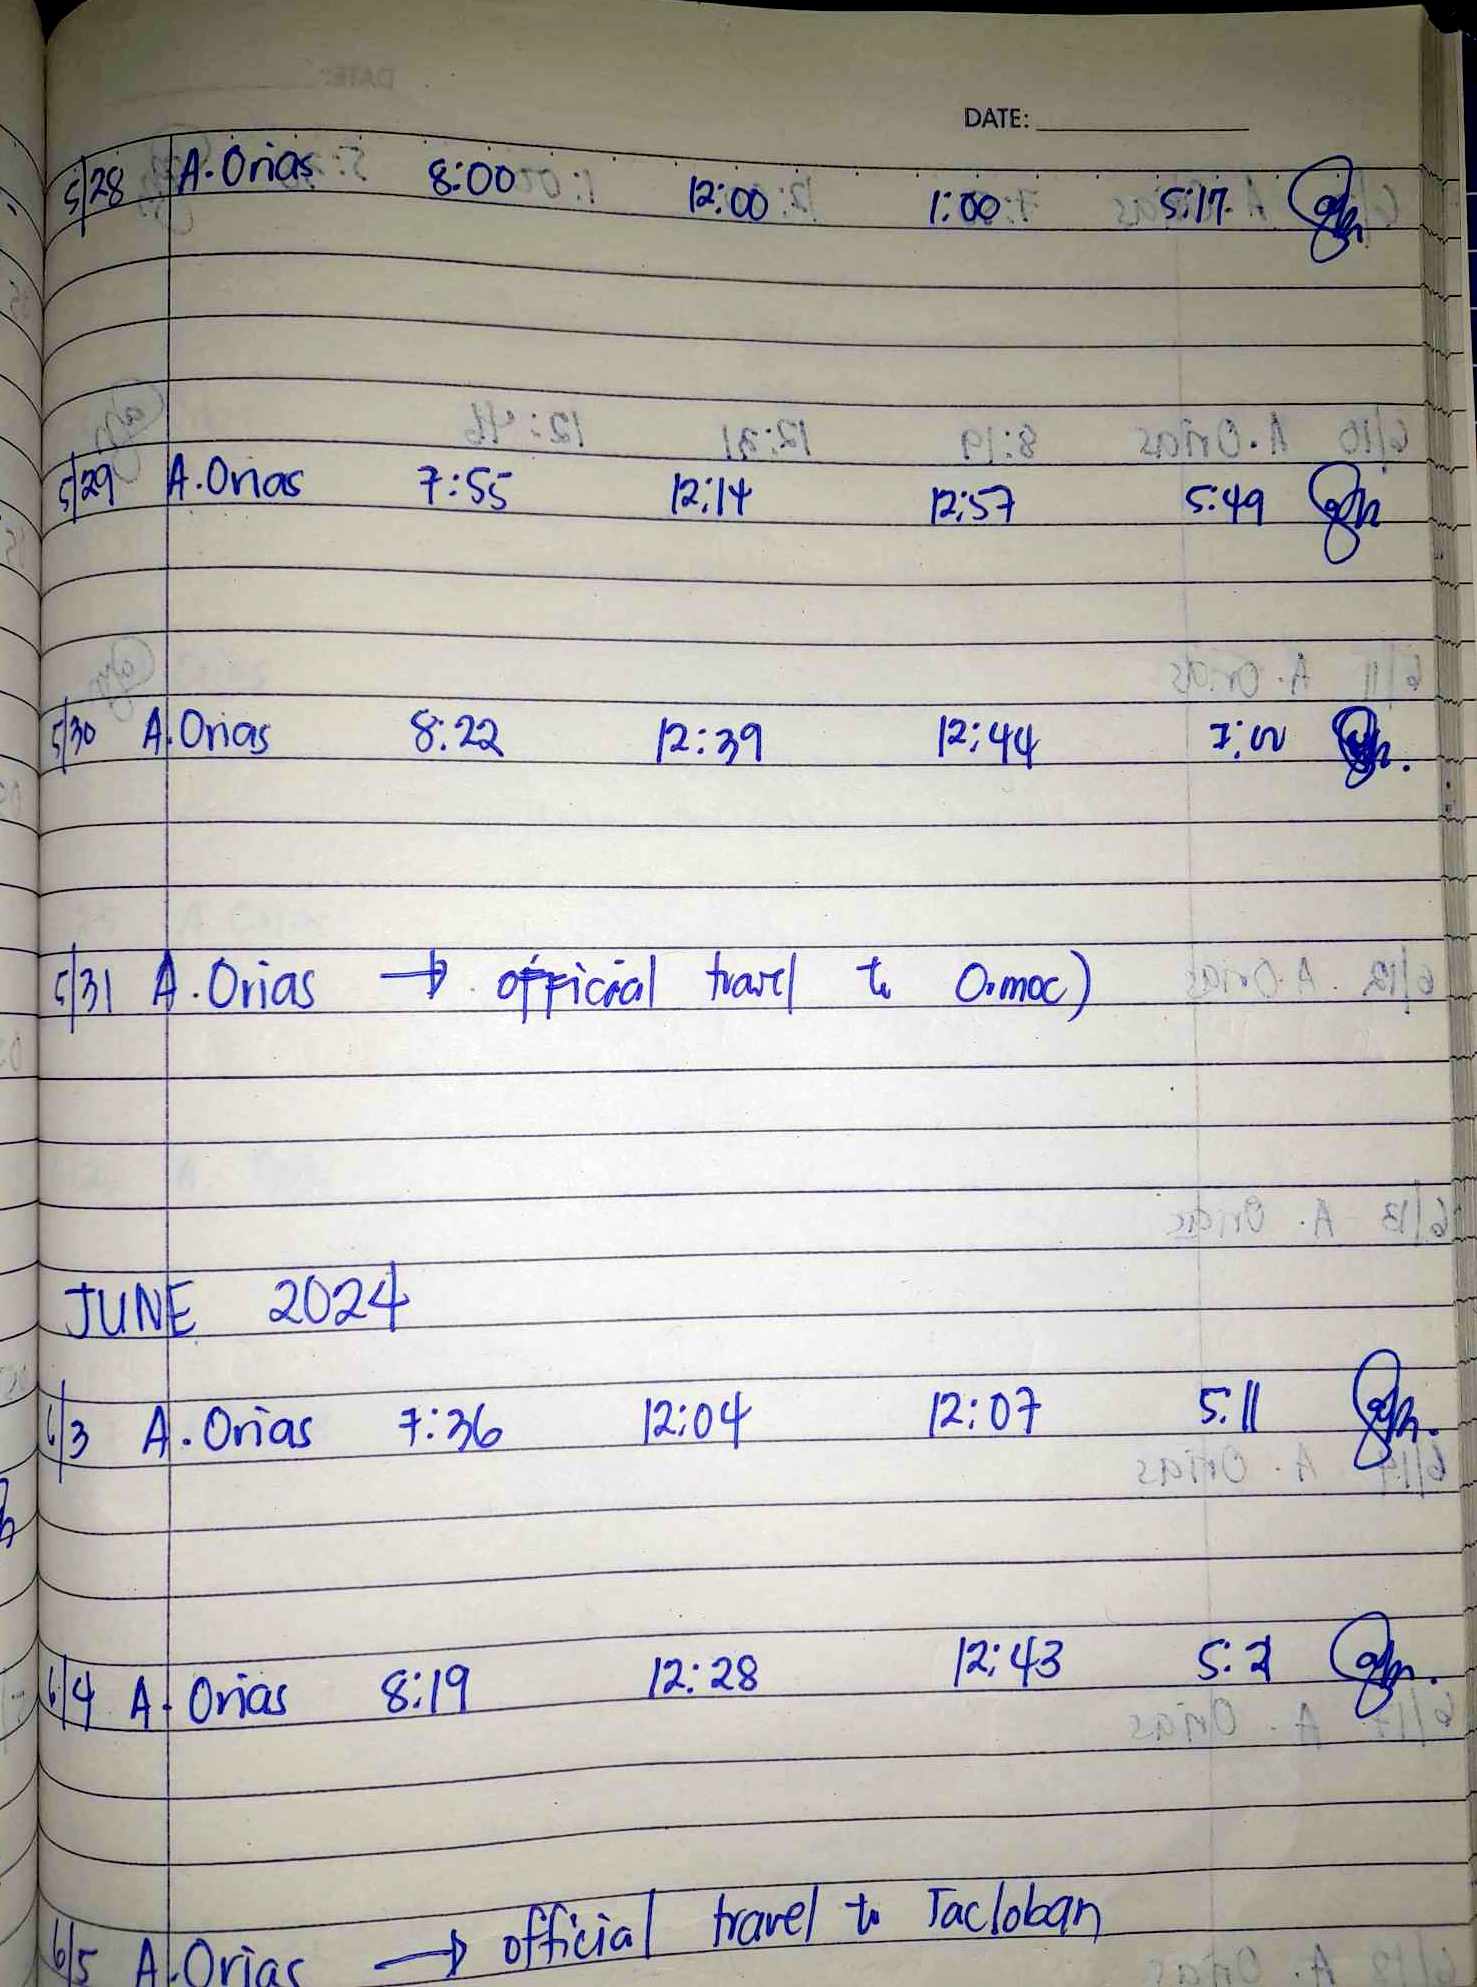 DATE:
5/28 A. Orias 8:00 12:00 1:00 5:17
5/29 A. Orias 7:55 12:14 12:57 5:49
5/30 A. Orias 8:22 12:39 12:44 7:00
5/31 A. Orias → official travel to Ormoc)
JUNE 2024
6/3 A. Orias 7:36 12:04 12:07 5:11
6/4 A. Orias 8:19 12:28 12:43
6/5 A. Orias → official travel to Tacloban